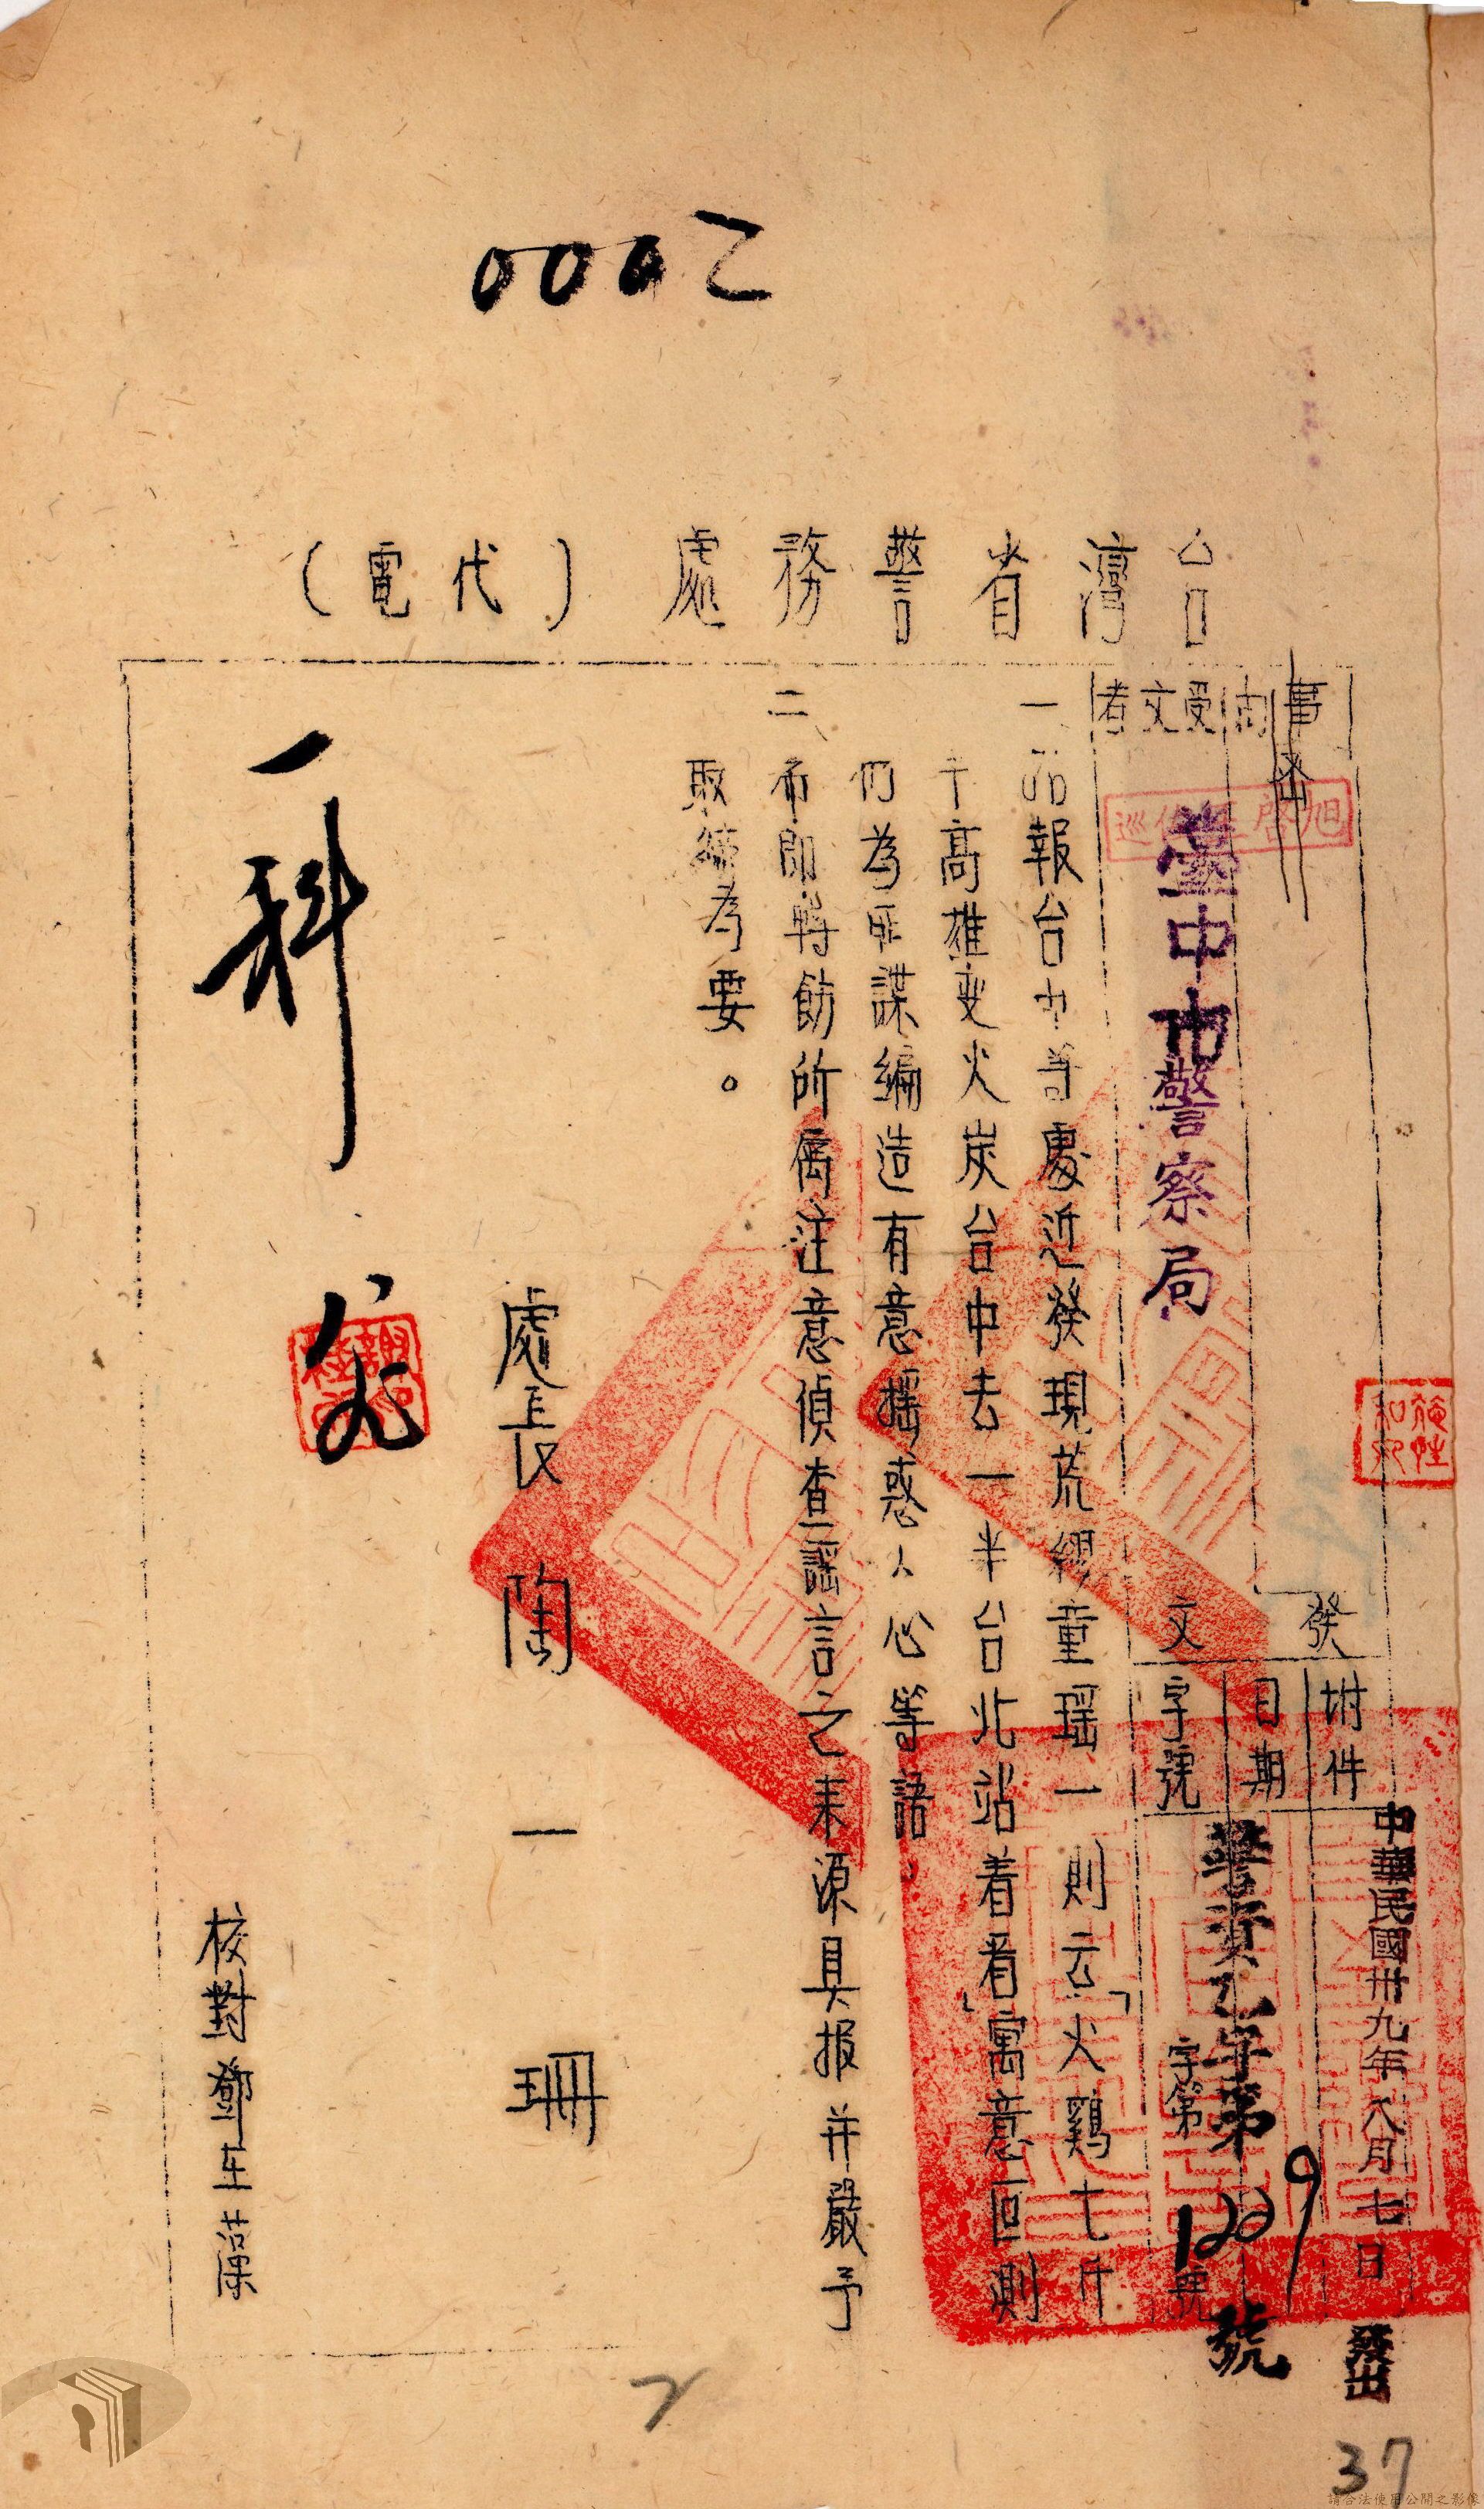 0002
台灣省警務處(代電)
事由
受文者
臺中市警察局
發文
附件
日期
字號
中華民國卅九年八月七日發出
字第
1229
號
一、
報台中等處近發現荒繆童瑶一則云「火鷄七斤
千高雄变火炭台中去一半台北站着看」寓意叵測
為匪諜編造有意摇惑人心等語。
二、希即轉飭所屬注意偵查謡言之来源具报并嚴予
取締為要。
處長陶一珊
一科
校對鄧玉藻
2
37
請合法使用公開之影像